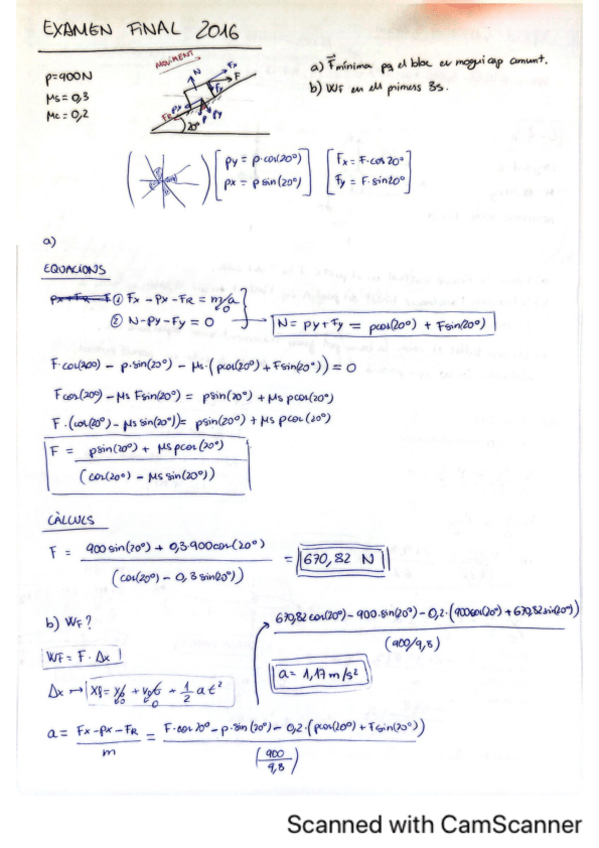 EXAMEN FINAL 2016
P=900N
μs=0,3
μc=0,2
MOVIMENT
N
Fx
F
Fy
Px
FR
P
Py
20°
a) F mínima pq el bloc es mogui cap amunt.
b) WF en els primers 3s.
Py = P·cos(20°)
Px = P sin(20°)
Fx = F·cos20°
Fy = F·sin20°
a)
EQUACIONS
① Fx - Px - FR = m/a 0
② N - Py - Fy = 0
N = Py + Fy = pcos(20°) + Fsin(20°)
F·cos(20°) - p·sin(20°) - μs·(pcos(20°) + Fsin(20°)) = 0
Fcos(20°) - μs Fsin(20°) = psin(20°) + μs pcos(20°)
F·(cos(20°) - μs sin(20°)) = psin(20°) + μs pcos(20°)
F = psin(20°) + μs pcos(20°)
(cos(20°) - μs sin(20°))
CÀLCULS
F = 900 sin(20°) + 0,3·900cos(20°) = 670,82 N
(cos(20°) - 0,3 sin(20°))
b) WF?
WF = F·Δx
Δx → Xf = x0 + v0t + 1/2 at²
0 0
a = Fx - Px - FR = F·cos20° - p·sin(20°) - 0,2·(pcos(20°) + Fsin(20°))
m (900/9,8)
670,82 cos(20°) - 900·sin(20°) - 0,2·(900cos(20°) + 670,82 sin(20°))
(900/9,8)
a = 1,17 m/s²
Scanned with CamScanner